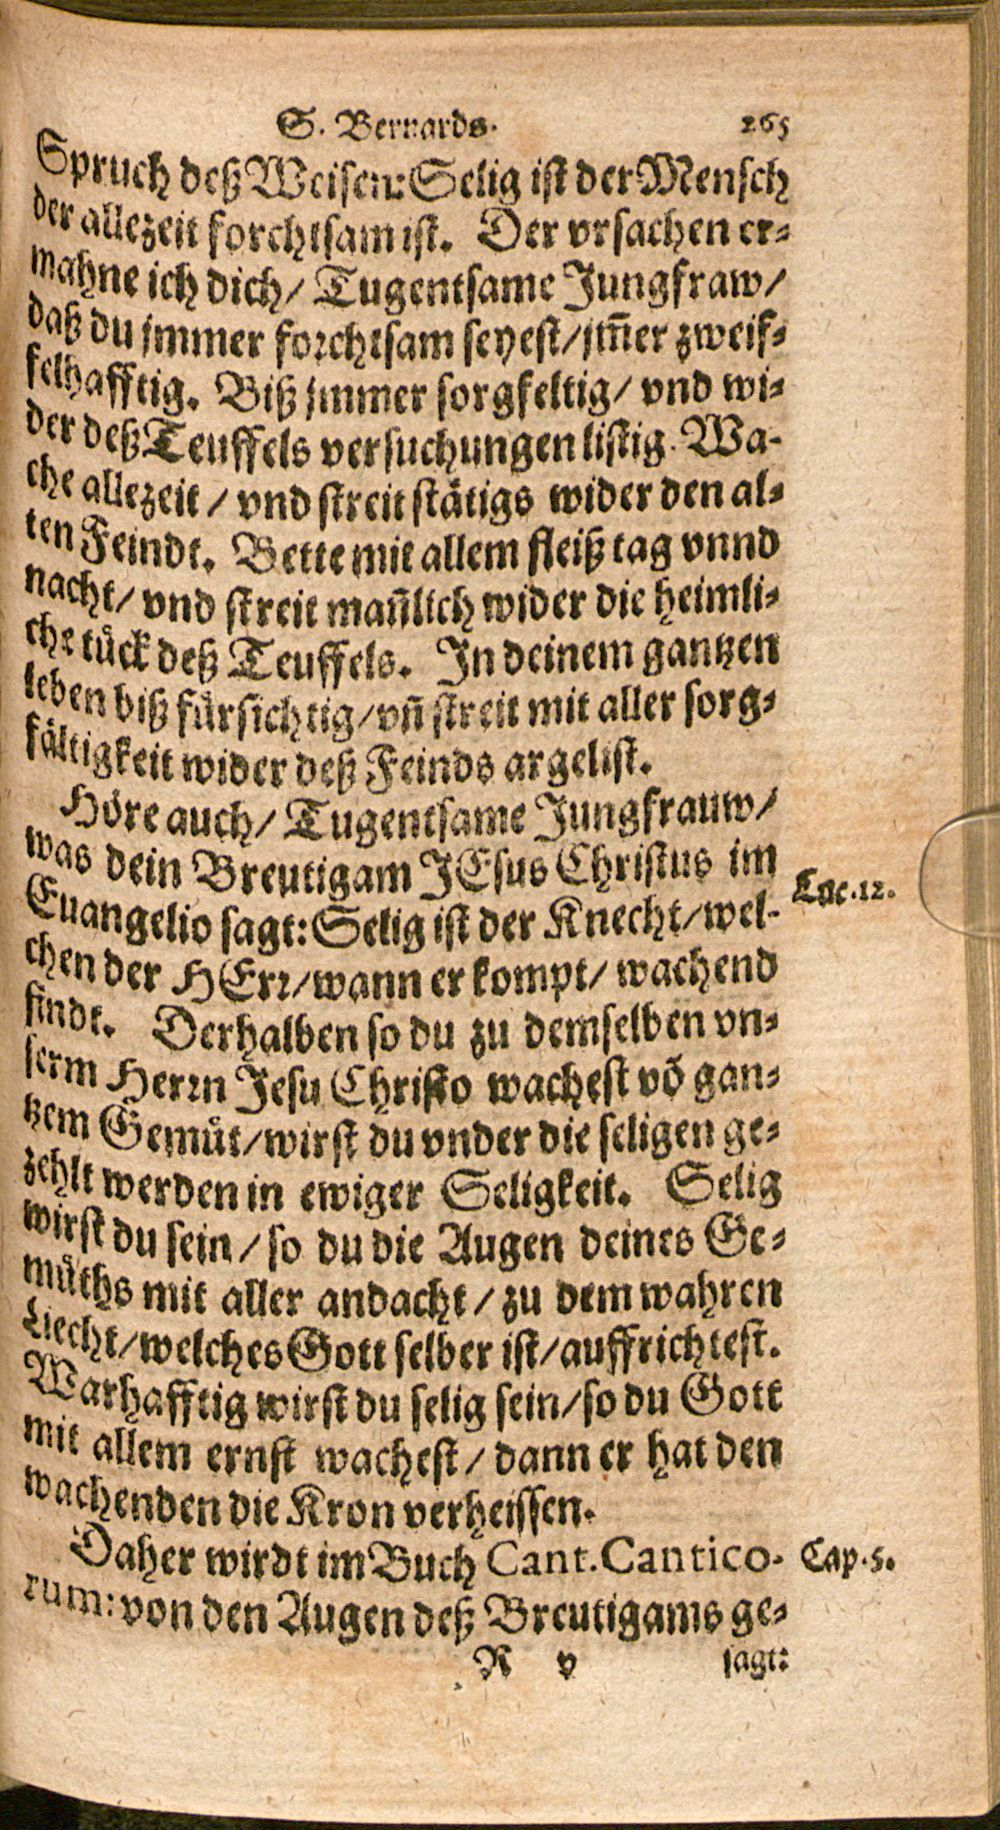 S. Bernards. 265
Spruch deß Weisen: Selig ist der Mensch
der allezeit forchtsam ist. Der vrsachen er-
mahne ich dich/ Tugentsame Jungfraw/
daß du jmmer forchtsam seyest/ jm̃er zweif-
felhafftig. Biß jmmer sorgfeltig/ vnd wi-
der deß Teuffels versuchungen listig. Wa-
che allezeit/ vnd streit stätigs wider den al-
ten Feindt. Bette mit allem fleiß tag vnnd
nacht/ vnd streit mañlich wider die heimli-
che tück deß Teuffels. In deinem gantzen
leben biß fürsichtig/ vñ streit mit aller sorg-
fältigkeit wider deß Feinds argelist.
Höre auch/ Tugentsame Jungfrauw/
was dein Breutigam JEsus Christus im
Euangelio sagt: Selig ist der Knecht/ wel- Luc. 12.
chen der HErr/ wann er kompt/ wachend
findt. Derhalben so du zu demselben vn-
serm Herrn Jesu Christo wachest võ gan-
tzem Gemüt/ wirst du vnder die seligen ge-
zehlt werden in ewiger Seligkeit. Selig
wirst du sein/ so du die Augen deines Ge-
müths mit aller andacht/ zu dem wahren
Liecht/ welches Gott selber ist/ auffrichtest.
Warhafftig wirst du selig sein/ so du Gott
mit allem ernst wachest/ dann er hat den
wachenden die Kron verheissen.
Daher wirdt im Buch Cant. Cantico- Cap. 5.
rum: von den Augen deß Breutigams ge-
R v sagt: